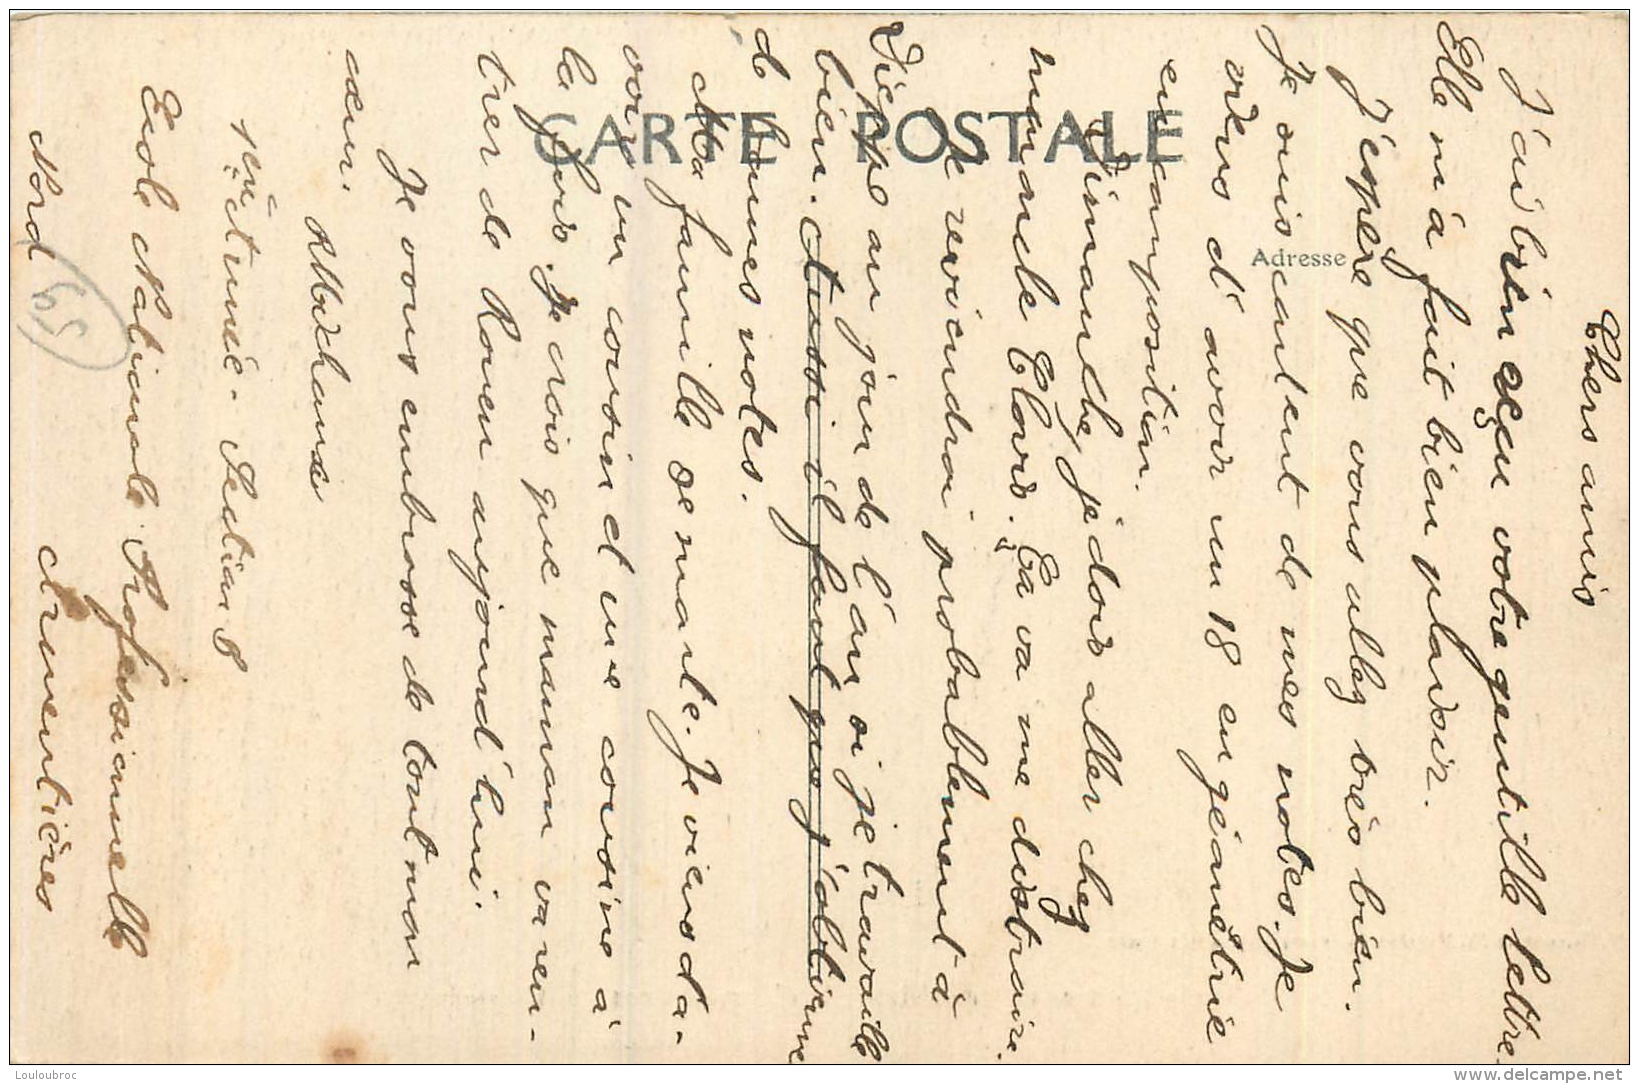 Chers amis
J'ai bien reçu votre gentille lettre.
Elle m'a fait bien plaisir.
J'espère que vous allez très bien.
Je suis content de mes notes. Je
viens d'avoir un 18 en géométrie
en composition.
Dimanche, je dois aller chez
mon oncle Clovis. Ça va me distraire.
Je reviendrai probablement à
Dieppe au jour de l'an si je travaille
bien. Aussi il faut que j'obtienne
de bonnes notes.
Ma famille augmente. Je viens d'a-
voir un cousin et une cousine à
la fois. Je crois que maman va ren-
trer de Rouen aujourd'hui.
Je vous embrasse de tout mon
cœur.
1ère année. Section B
Ecole Nationale Professionnelle
Armentières
Nord
59
CARTE POSTALE
Adresse
Louloubroc
www.delcampe.net